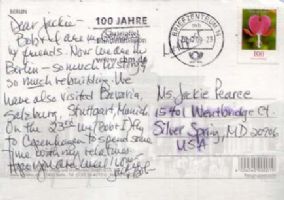 BERLIN
Dear Jackie -
Bob & I are
friends. Now we are in
Berlin - so much history
so much rebuilding. We
have also visited Bavaria,
Salzburg, Stuttgart, Munich.
On the 23rd I fly
to Copenhagen to spend some
time with my relatives.
Hope you are well
100 JAHRE
BRIEFZENTRUM
100
Ms. Jackie Pearce
15401 Westbridge Ct.
Silver Spring, MD 20906
USA